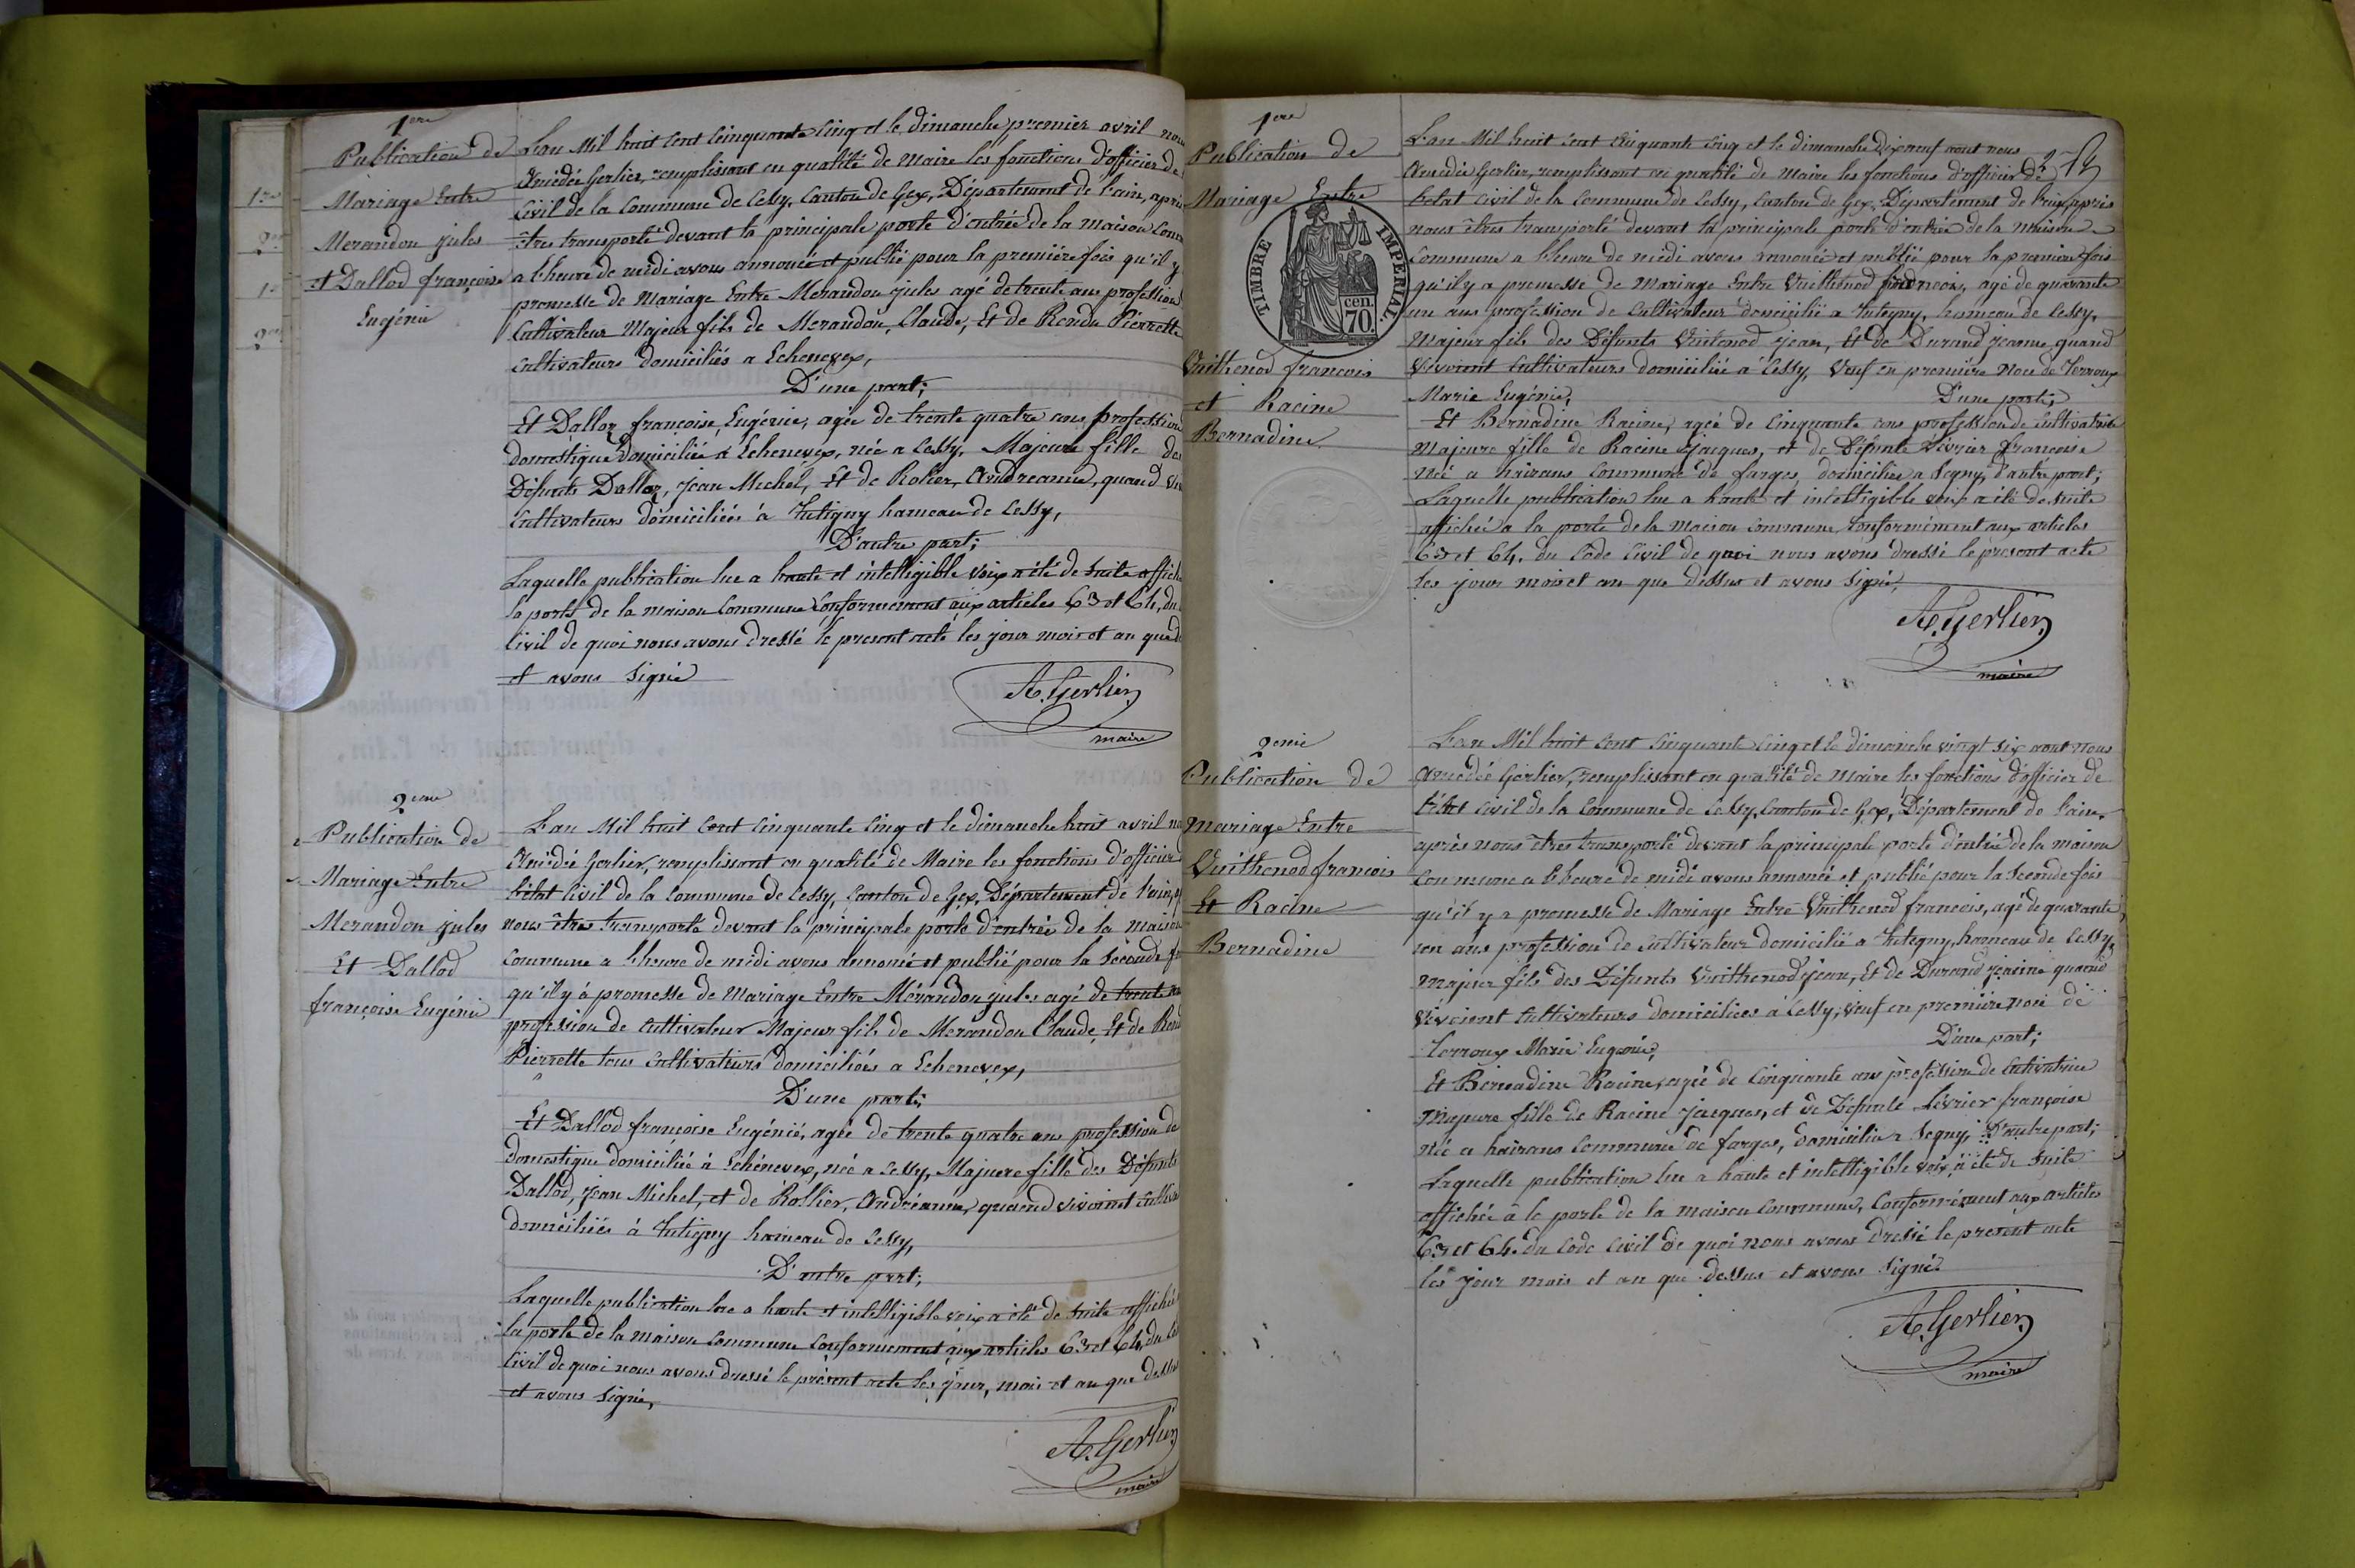 1ere
Publication de
Mariage Entre
Merandon jules
et Dallod françoise
Eugénie
L'an Mil huit Cent Cinquante Cinq et le dimanche premier avril nous
Amédée Gerlier, remplissant en qualité de Maire les fonctions d'officier de
Civil de la Commune de Cessy, Canton de Gex, Département de l'ain, après
êtres transporté devant la principale porte d'entrée de la maison Com
a l'heure de midi avons annoncé et publié pour la première fois qu'il y
promesse de Mariage Entre Merandon jules agé de trente ans profession
Cultivateur Majeur fils de Merandon, Claude, Et de Rendu Pierrette
Cultivateurs domiciliés a Echenevex,
D'une part;
Et Dalloz françoise Eugénie, agée de trente quatre ans profession
domestique domiciliée à Echenevex, née a Cessy, Majeure fille des
Défunts Dalloz, Jean Michel, Et de Rolier, Andréanne, quand viv
Cultivateurs domiciliés à Tutigny hameau de Cessy,
D'autre part;
Laquelle publication lue a haute et intelligible voix a été de suite affich
la porte de la maison Commune Conformement aux articles 63 et 64, du
Civil de quoi nous avons dressé le present acte les jour mois et an que d
et avons Signé
A. Gerlier
maire
2eme
Publication de
Mariage Entre
Merandon jules
Et Dallod
françoise Eugénie
L'an Mil huit Cent Cinquante Cinq et le dimanche huit avril no
Amédée Gerlier, remplissant en qualité de Maire les fonctions d'officier d
l'état Civil de la Commune de Cessy, Canton de Gex, Département de l'ain, a
nous êtres transporté devant la principale porte d'entrée de la maison
Commune a l'heure de midi avons annoncé et publié pour la Seconde fo
qu'il y à promesse de Mariage Entre Mérandon jules agé de trente an
profession de Cultivateur Majeur fils de Merandon Claude, Et de Rend
Pierrette tous Cultivateurs domiciliés a Echenevex,
D'une part;
Et Dallod françoise Eugénié, agée de trente quatre ans profession de
domestique domiciliée à Echénevex, née a Cessy, Majeure fille des Défunts
Dallod, Jean Michel, et de Rollier, Andréanne, quand vivoint Cultiva
domiciliés à Tutigny hameau de Cessy,
D'autre part;
Laquelle publication lue a haute et intelligible voix a été de suite affichée
la porte de la maison Commune Conformement aux articles 63 et 64, du Co
Civil de quoi nous avons dressé le présent acte les jour, mois et an que dessus
et avons Signé,
A. Gerlier
maire
1ere
Publication de
Mariage Entre
TIMBRE IMPERIAL.
cen.
70.
Vuithenod francois
et Racine
Bernadine
L'an Mil huit cent Cinquante Cinq et le dimanche dix neuf aout nous
Amedée Gerlier, remplissant en qualité de Maire les fonctions d'officier de
l'etat Civil de la Commune de Cessy, Canton de Gex, Département de l'ain, après
nous êtres transporté devant la principale porte d'entrée de la maison
Commune a l'heure de midi avons annoncé et publié pour la première fois
qu'il y a promesse de Mariage Entre Vuithenod francois, agé de quarante
un ans profession de Cultivateur domicilié a Tutegny, hameau de Cessy,
Majeur fils des Défunts Vuitenod Jean, Et de Durand Jeanne quand
Vivoient Cultivateurs domicilié à Cessy, Veuf en première Noce de Terroux
Marie Eugénie, D'une part;
Et Bernadine Racine, agée de Cinquante ans profession de Cultivatrice
Majeure fille de Racine Jacques, et de Défunte Lévrier françoise
née a hairans Commune de farges, domiciliée a Segny, d'autre part;
Laquelle publication lue a haute et intelligible voix a été de suite
affichée a la porte de la Maison Commune Conformément aux articles
63 et 64. du Code Civil de quoi nous avons dressé le present acte
les jour mois et an que dessus et avons Signé,
A. Gerlier
maire
2eme
Publication de
Mariage Entre
Vuithenod francois
Et Racine
Bernadine
L'an Mil huit Cent Cinquante Cinq et le dimanche vingt six aout nous
Amédée Gerlier, remplissant en qualité de Maire les fonctions d'officier de
l'état Civil de la Commune de Cessy, Canton de Gex, Département de l'ain.
après nous êtres transporté devant la principale porte d'entrée de la maison
Commune a l'heure de midi avons annoncé et publié pour la Seconde fois
qu'il y a promesse de Mariage Entre Vuithenod francois, agé de quarante
un ans profession de Cultivateur domicilié a Tutegny, hameau de Cessy,
Majeur fils des Défunts Vuithenod Jean, Et de Durand Jeanne quand
Vivoient Cultivateurs domiciliés à Cessy, veuf en première noce de
Terroux Marie Eugénie, D'une part;
Et Bernadine Racine, agée de Cinquante ans profession de Cultivatrice
Majeure fille de Racine Jacques, et de Défunte Lévrier françoise
née a hairans Commune de farges, domiciliée a Segny, D'autre part;
Laquelle publication lue a haute et intelligible voix à été de suite
affichée à la porte de la maison Commune, Conformément aux articles
63 et 64. du Code Civil de quoi nous avons dressé le présent acte
les jour mois et an que dessus et avons Signé
A. Gerlier
maire